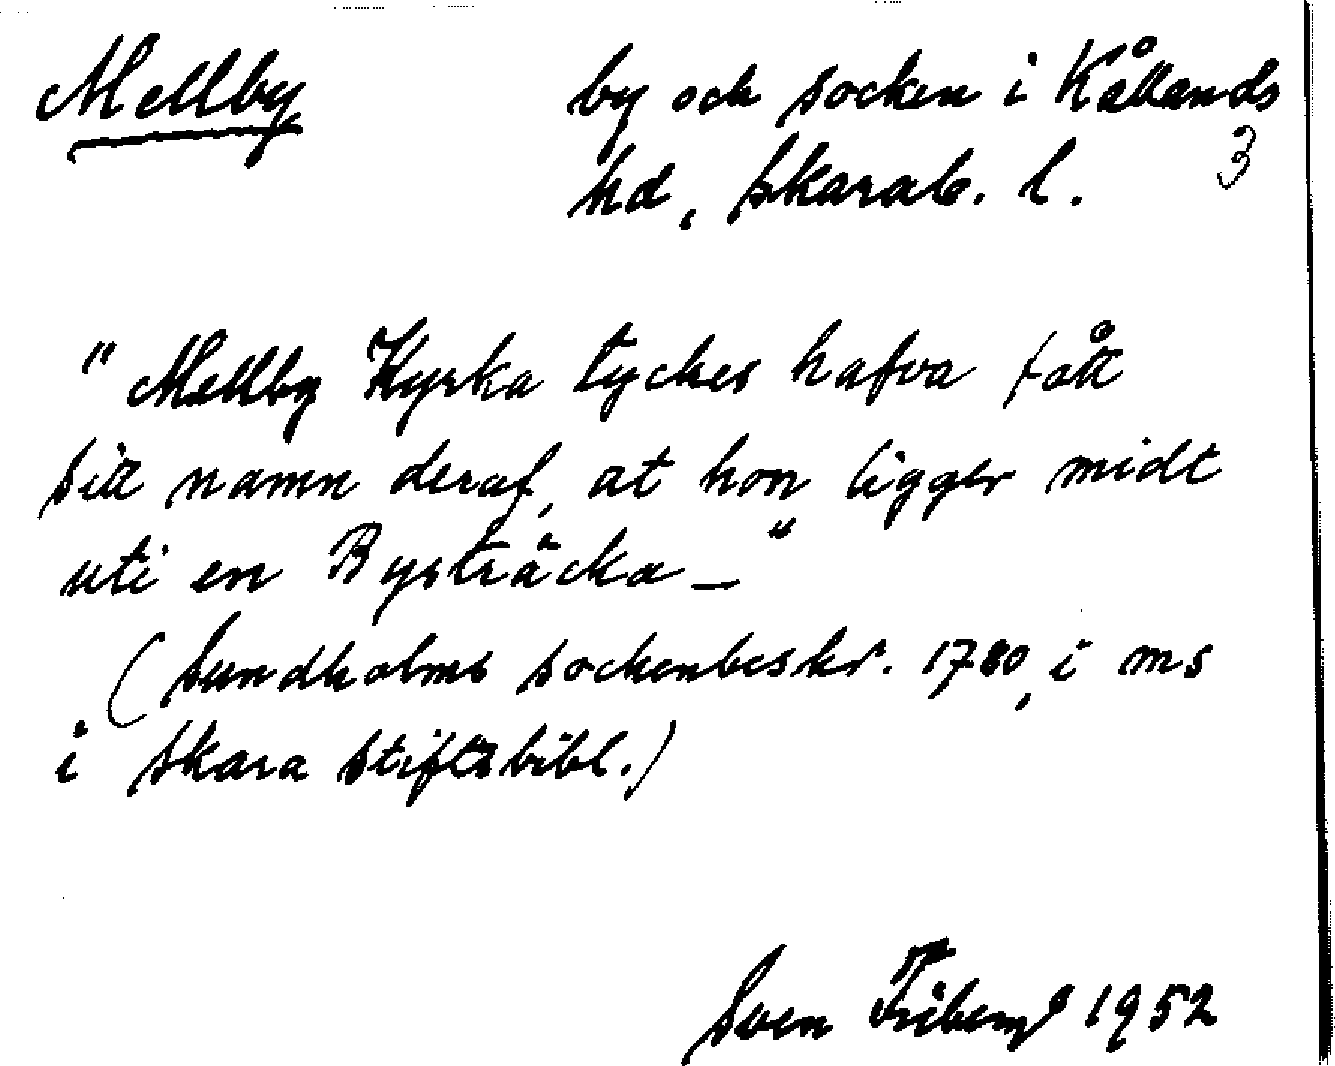 Mellby by och socken i Kållands
hd, Skarab. l. 3
"Mellby Kyrka tyckes hafva fått
sitt namn deraf, at hon ligger midt
uti en Bysträcka—"
(Sundholms sockenbeskr. 1780, i ms
i Skara stiftsbibl.)
Sven Friberg 1952